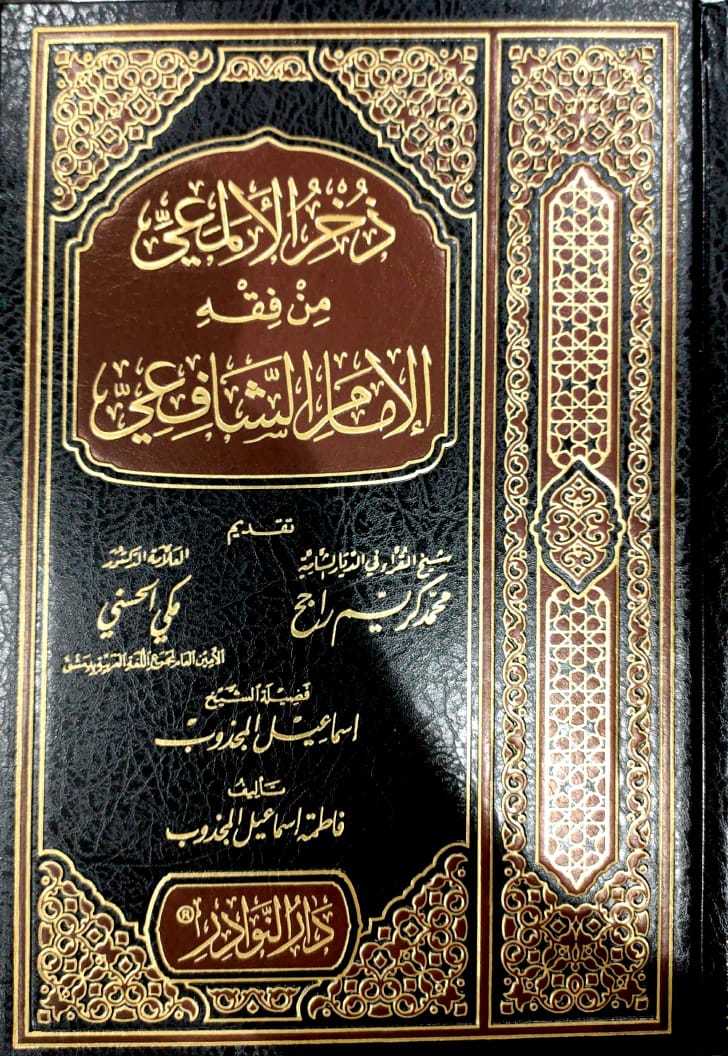 ذُخْرُ الألمَعِيِّ
مِنْ فِقْهِ
الإمَامِ الشَّافِعِيِّ
تقديم
شيخ القراء في الديار الشامية
محمد كريم راجح
العلامة الدكتور
مكي الحسني
الأمين العام لمجمع اللغة العربية بدمشق
فضيلة الشيخ
اسماعيل المجذوب
تأليف
فاطمة اسماعيل المجذوب
دَارُ النَّوَادِرِ ®